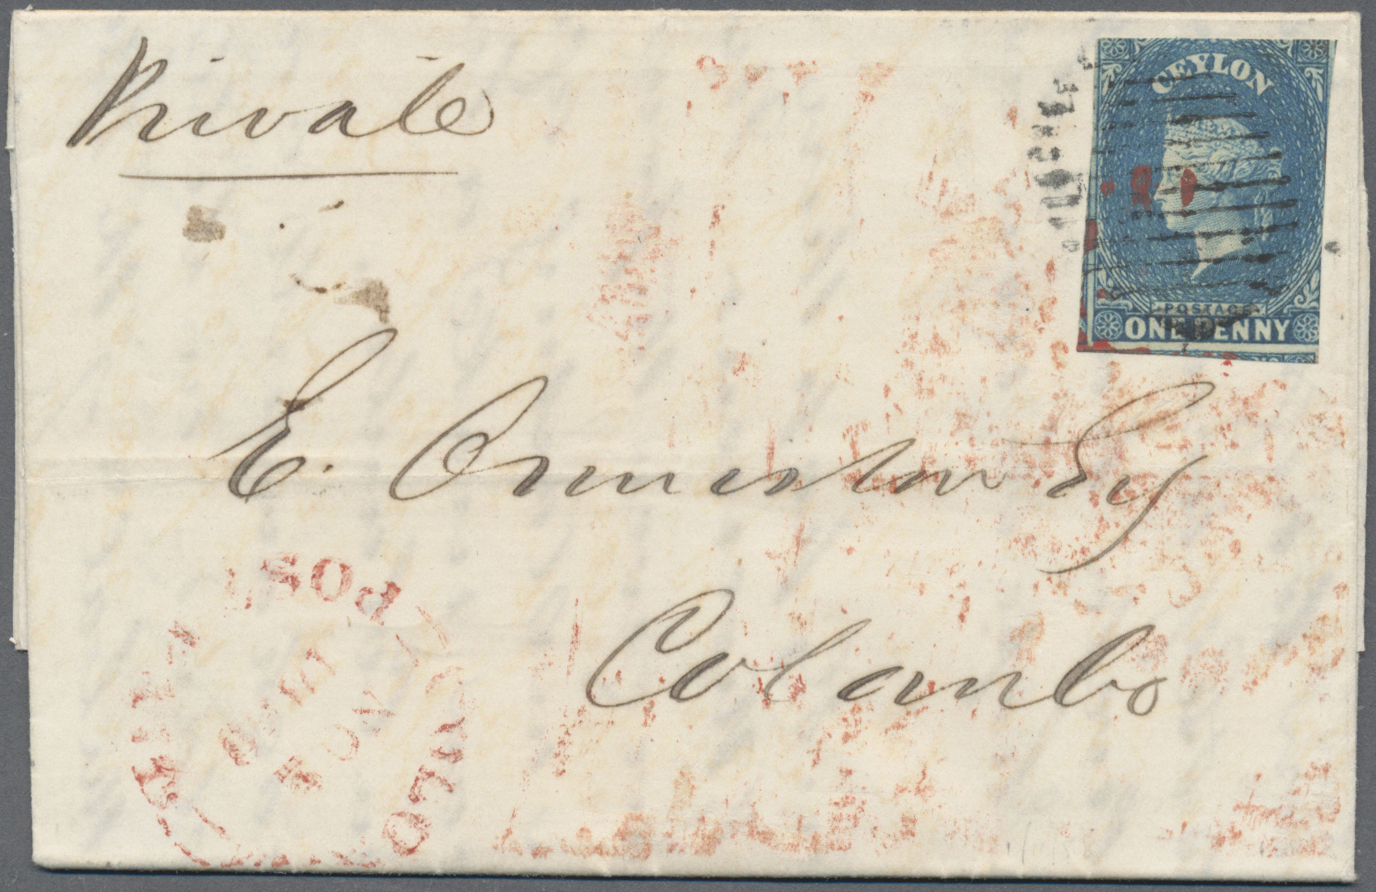 Private
CEYLON
POSTAGE
ONE PENNY
E. Ormiston Esq
Colombo
POST
NOV